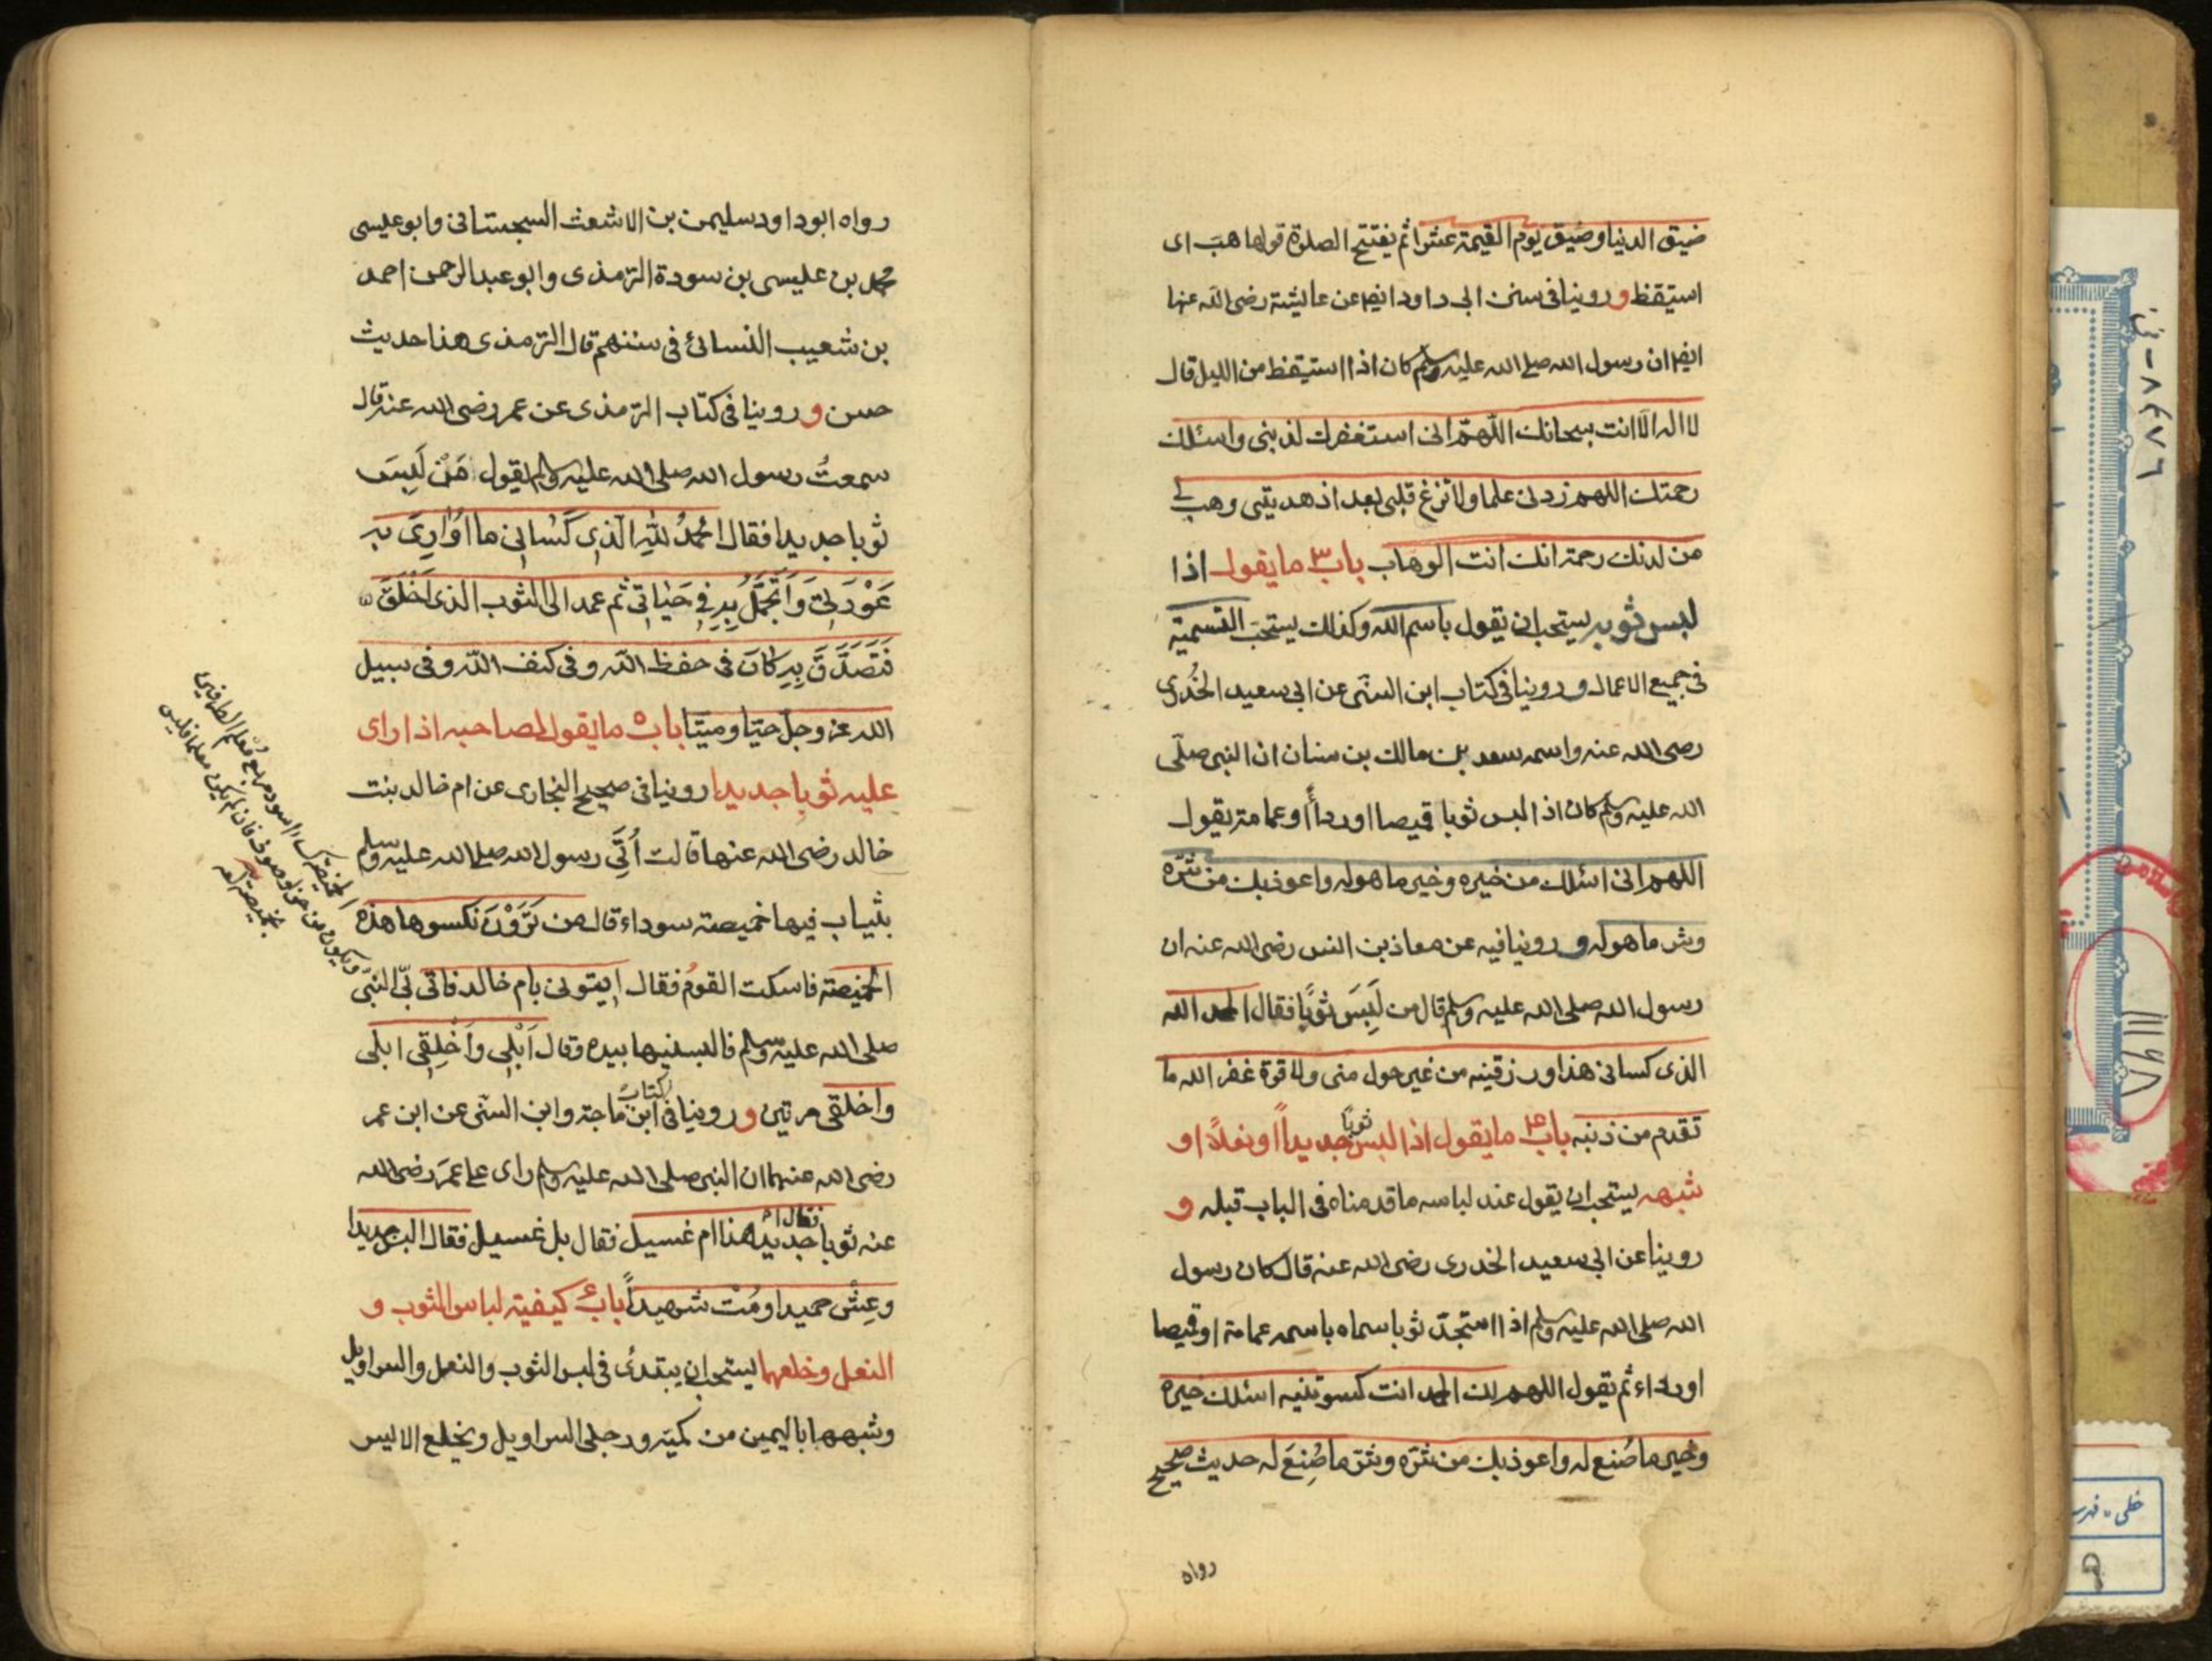 ضيق الدنيا وضيق يوم القيمة عشرا ثم يفتتح الصلوة قولها هبّ اى
استيقظ و روينا فى سنن ابى داود ايضا عن عايشة رضى الله عنها
ايضا ان رسول الله صلى الله عليه وسلم كان اذا استيقظ من الليل قال
لا اله الا انت سبحانك اللهمّ انى استغفرك لذنبى واسئلك
رحمتك اللهم زدنى علما ولا تزغ قلبى بعد اذ هديتنى وهب لى
من لدنك رحمة انك انت الوهاب باب ٣ ما يقول اذا
لبس ثوبه يستحب ان يقول باسم الله وكذلك يستحب التسمية
فى جميع الاعمال و روينا فى كتاب ابن السنّى عن ابى سعيد الخُدرى
رضى الله عنه واسمه سعد بن مالك بن سنان ان النبى صلّى
الله عليه وسلم كان اذا لبس ثوبا قميصا او رداءً او عمامة يقول
اللهم انى اسئلك من خيره وخير ما هو له واعوذ بك من شرّه
وشر ما هو له و روينا فيه عن معاذ بن انس رضى الله عنه ان
رسول الله صلى الله عليه وسلم قال من لَبِسَ ثوبًا فقال الحمد لله
الذى كسانى هذا ورزقنيه من غير حول منى ولا قوة غفر الله ما
تقدم من ذنبه باب ۴ ما يقول اذا لبس ثوبًا جديداً او نعلاً او
شبهه يستحب ان يقول عند لباسه ما قدمناه فى الباب قبله و
روينا عن ابى سعيد الخدرى رضى الله عنه قال كان رسول
الله صلى الله عليه وسلم اذا استجدّ ثوبا سماه باسمه عمامة او قميصا
او رداء ثم يقول اللهم لك الحمد انت كسوتنيه اسئلك خيره
وخير ما صُنع له واعوذ بك من شرّه وشرّ ما صُنِعَ له حديث صحيح
رواه
رواه ابو داود سليمن بن الاشعث السجستانى وابو عيسى
محمد بن عيسى بن سورة الترمذى وابو عبد الرحمن احمد
بن شعيب النسائى فى سننهم قال الترمذى هذا حديث
حسن و روينا فى كتاب الترمذى عن عمر رضى الله عنه قال
سمعتُ رسول الله صلى الله عليه وسلم يقول مَنْ لَبِسَ
ثوبا جديدا فقال الحمدُ للهِ الّذِى كَسانِى ما اُوٰارِىَ به
عَوْرَتِى وَاَتَجَمَّلُ بِهِ فِى حَيٰاتِى ثم عمد الى الثوب الذى اَخْلَقَ
فَتَصَدَّقَ بِهِ كانَ فى حفظ الله وفى كنف الله وفى سبيل
الله عز وجلّ حيّا وميّتا باب ٥ ما يقول لصاحبه اذا راى
عليه ثوبا جديدا روينا فى صحيح البخارى عن ام خالد بنت
خالد رضى الله عنها قالت اُتِىَ رسول الله صلى الله عليه وسلم
بثياب فيها خميصة سوداء قال من تَرَوْنَ نكسوها هذه
الخميصة فاسكت القومُ فقال ايتونى بام خالد فاتى بى النبىّ
صلى الله عليه وسلم فالبسنيها بيده وقال اَبْلِى وَاَخْلِقِى ابلى
واخلقى مرتين و روينا فى كتاب ابن ماجة وابن السّنى عن ابن عمر
رضى الله عنهما ان النبى صلى الله عليه وسلم راى على عمَر رضى الله
عنه ثوبا فقال اجديد هذا ام غسيل فقال بل غسيل فقال البس جديدا
وعِش حميدا ومُتْ شهيداً باب ۶ كيفية لباس الثوب و
النعل وخلعهما يستحب ان يبتدئ فى لبس الثوب والنعل والسراويل
وشبهها باليمين من كمّيه ورجلى السراويل ويخلع الايسر
الخميصة كساء اسود مربع مُعلم الطرفين
ويكون من خز او صوف فان لم يكن معلما فليس
بخميصة
١١١٤٨